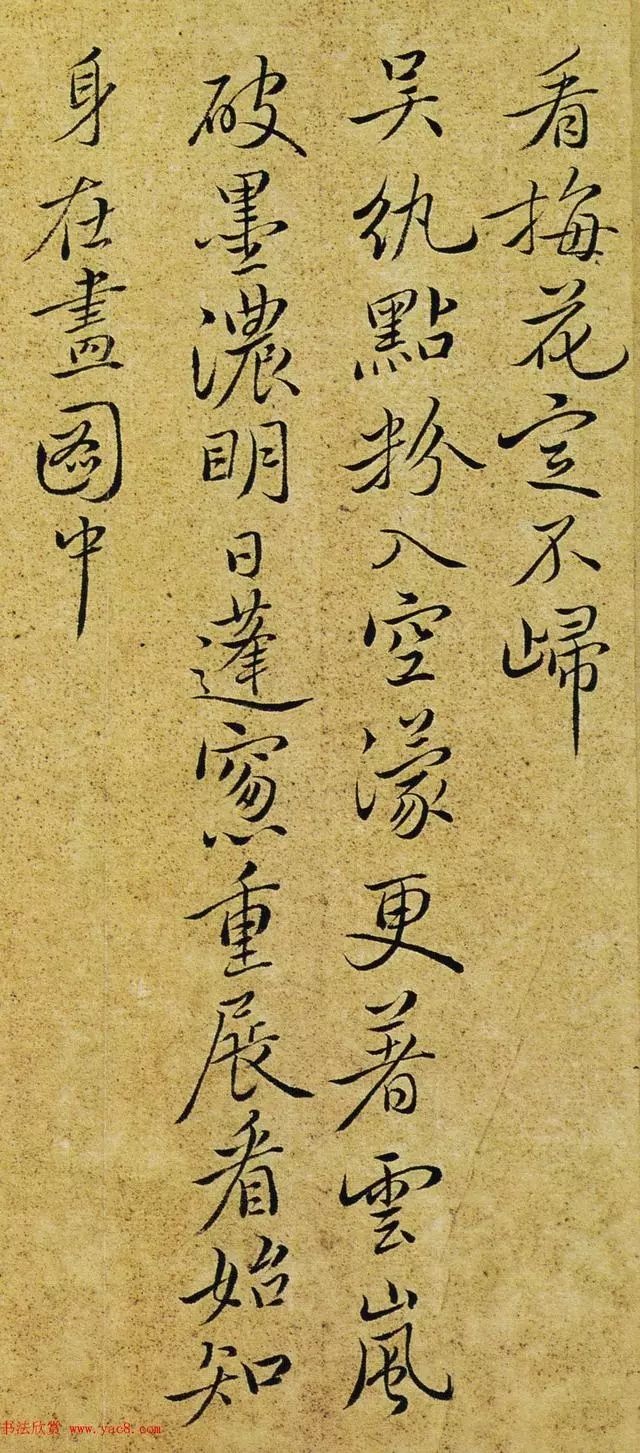 看梅花定不歸
吴紈點粉入空濛更著雲嵐
破墨濃明日蓬窓重展看始知
身在畫圖中
书法欣赏 www.yac8.com